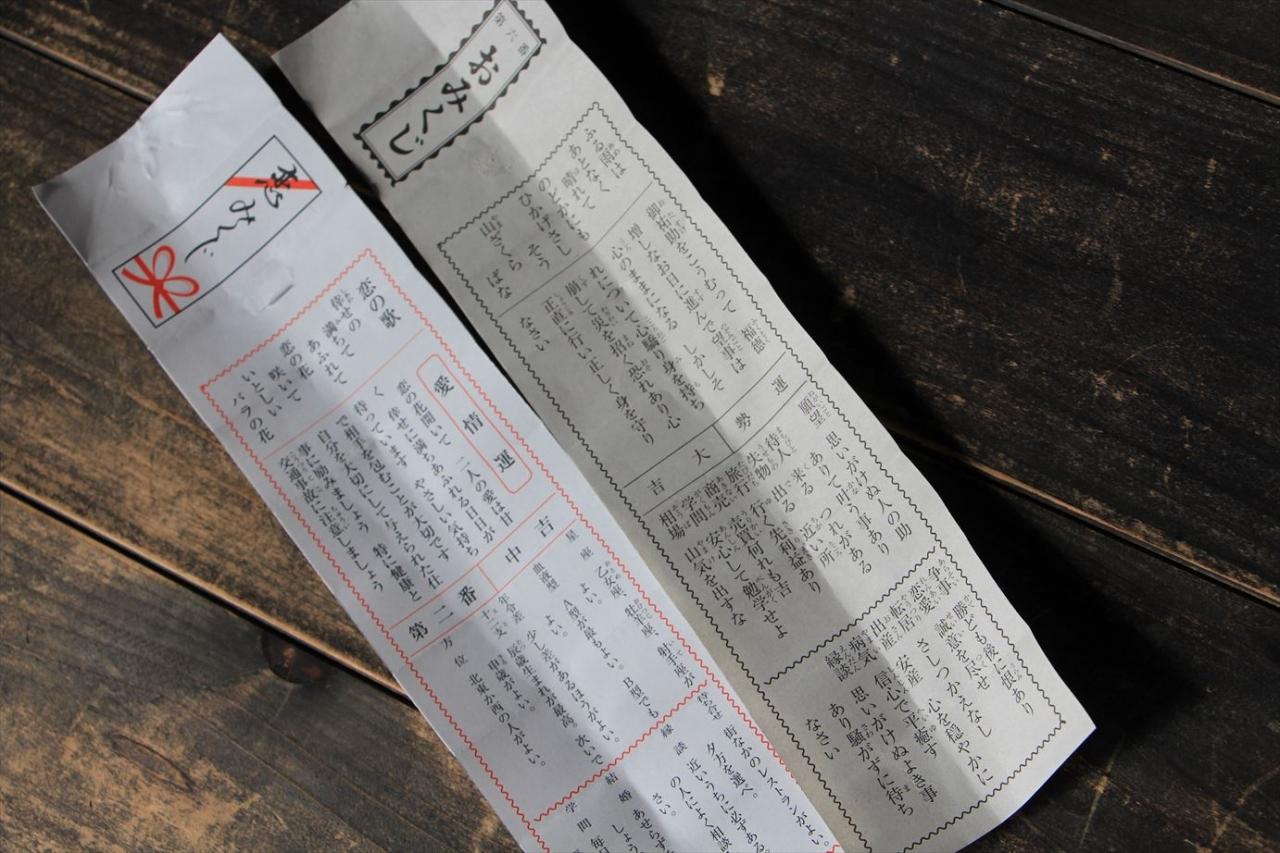 第六番
おみくじ
ふる雨は
あとなく
晴れて
のどかにも
ひかげさしそう
山ざくらばな
御祐助をこうむって 福徳
増しなお日に進んで望事は
心のままになる しかしそ
れについて心驕り身を持ち
崩して災を招く恐れあり心
正直に行い正しく身を守り
なさい
運勢 大吉
願望 思いがけぬ人の助
ありて 叶う事あり
待人 来る つれがある
失物 出る 近い所
旅行 行く先利益あり
商売 売買何れも吉
学問 安心して勉学せよ
相場 山気を出すな
争事 勝ども後に恨あり
恋愛 誠意を尽せ
転居 さしつかえなし
出産 安産 心を穏やかに
病気 信心で平癒す
縁談 思いがけぬよき事
あり騒がずに待ち
なさい
恋みくじ
恋の歌
倖せの
満ちて
あふれて
恋の花
咲いて
いとしい
バラの花
愛情運
恋の花開いて 二人の愛は甘
く 倖せに満ちあふれる日日が
待っています やさしい気持ち
で相手を包むことが大切です
自分を大切にして与えられた仕
事に励みましょう 特に健康と
交通事故に注意しましょう
中吉
第二番
星座 乙女座、牡羊座、射手座が
よい。
血液型 A型が最もよい。B型でも
よい。
年令差 少し差があるほうがよい。
十二支 辰歳生まれが最高、次いで
申歳がよい。
方位 北東か西の人がよい。
待合せ 街なかのレストランがよい。
夕方を選べ。
縁談 近いうちに必ずある。
の人によく相談
さい。
結婚 あせらず
しょう
学問 毎日